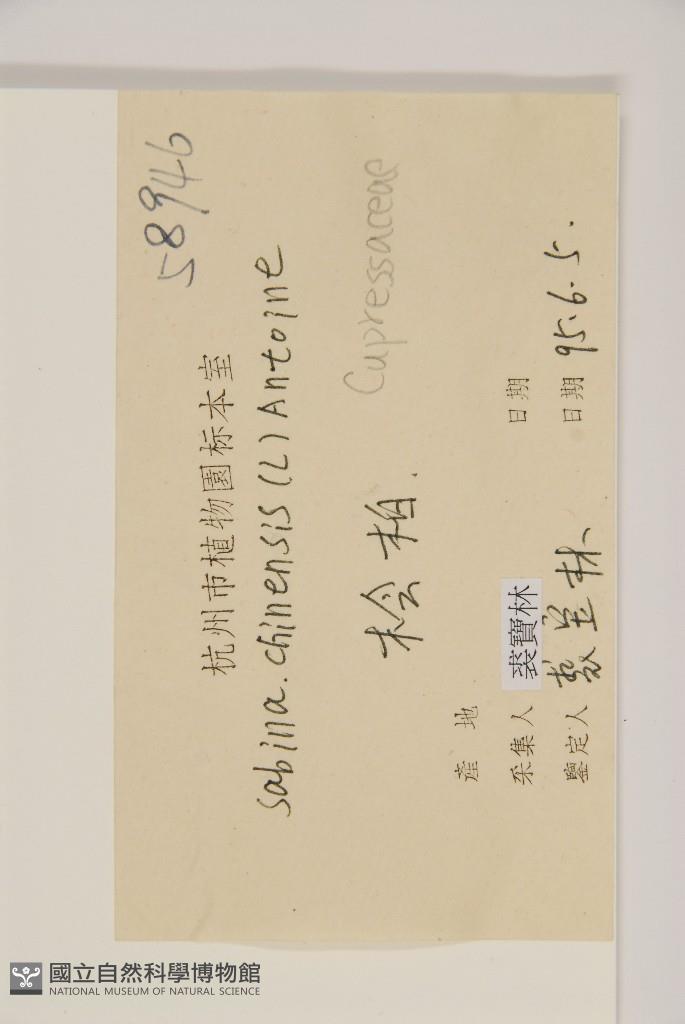 58946
杭州市植物園标本室
Sabina. chinensis (L) Antoine
Cupressaceae
桧柏.
產 地
采集人 裘寶林 日期
鑒定人 裘宝林 日期 95.6.5.
國立自然科學博物館
NATIONAL MUSEUM OF NATURAL SCIENCE